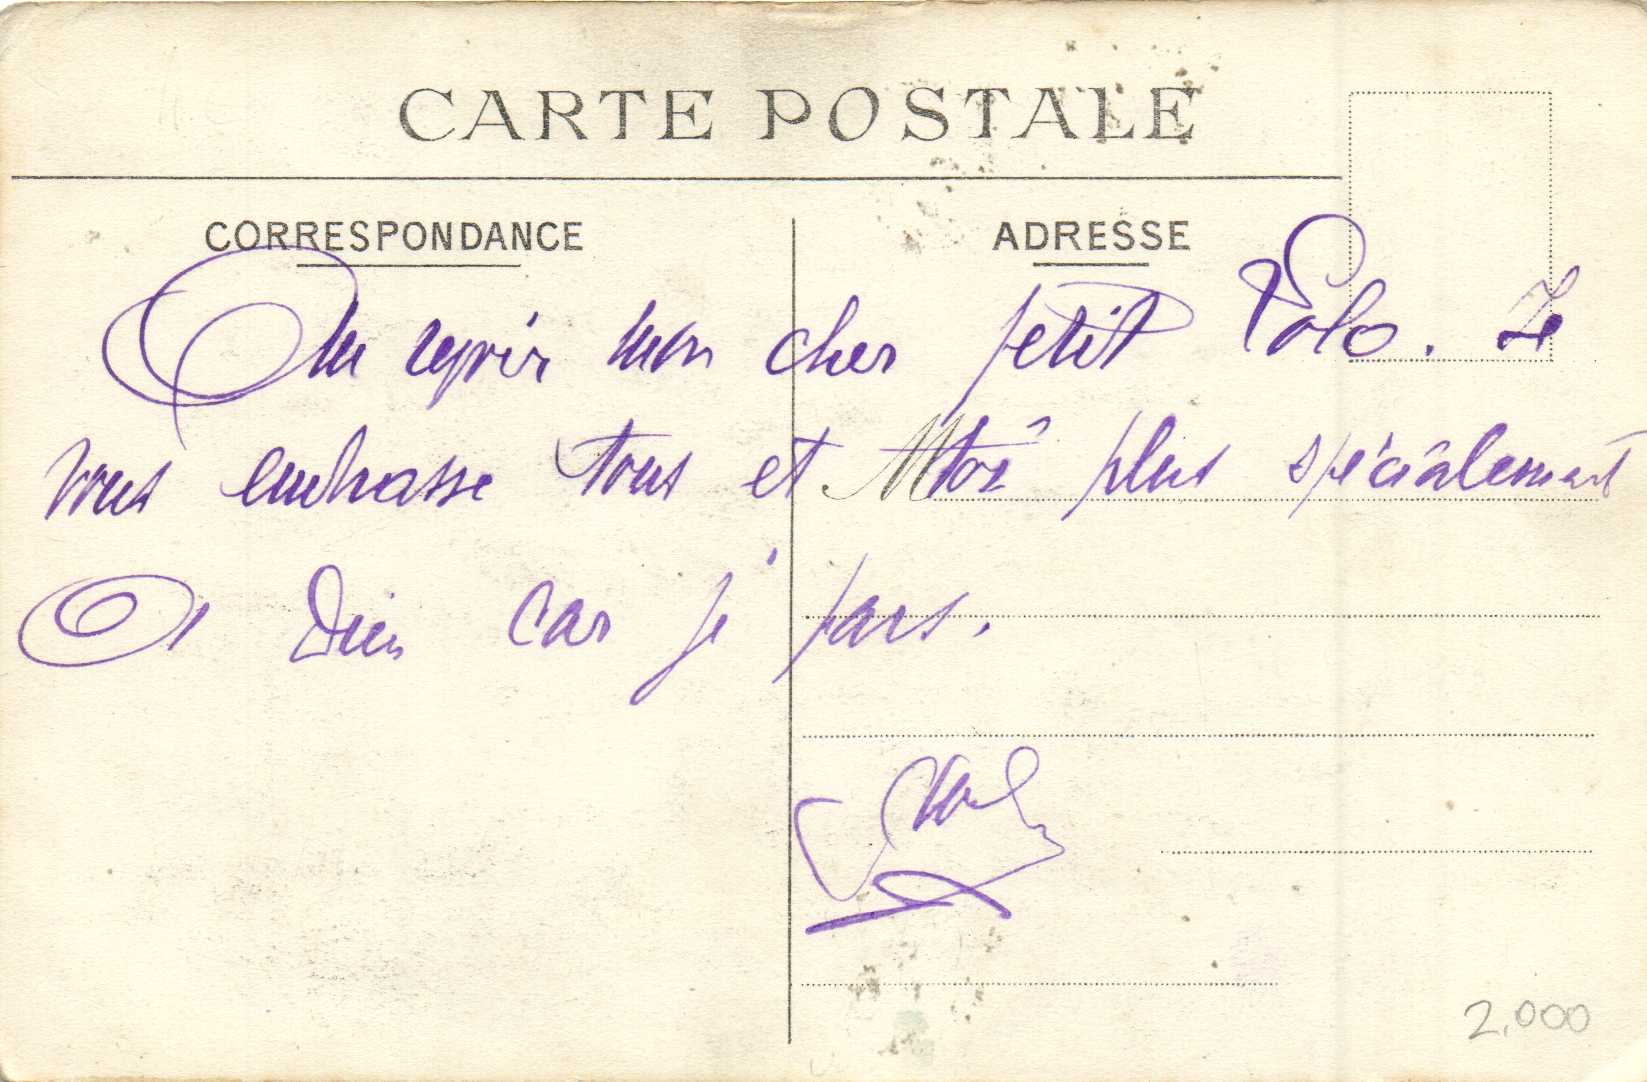 CARTE POSTALE
CORRESPONDANCE
ADRESSE
Au revoir mon cher petit Polo. Je
vous embrasse tous et toi plus spécialement
A Dieu car je pars.
2.000